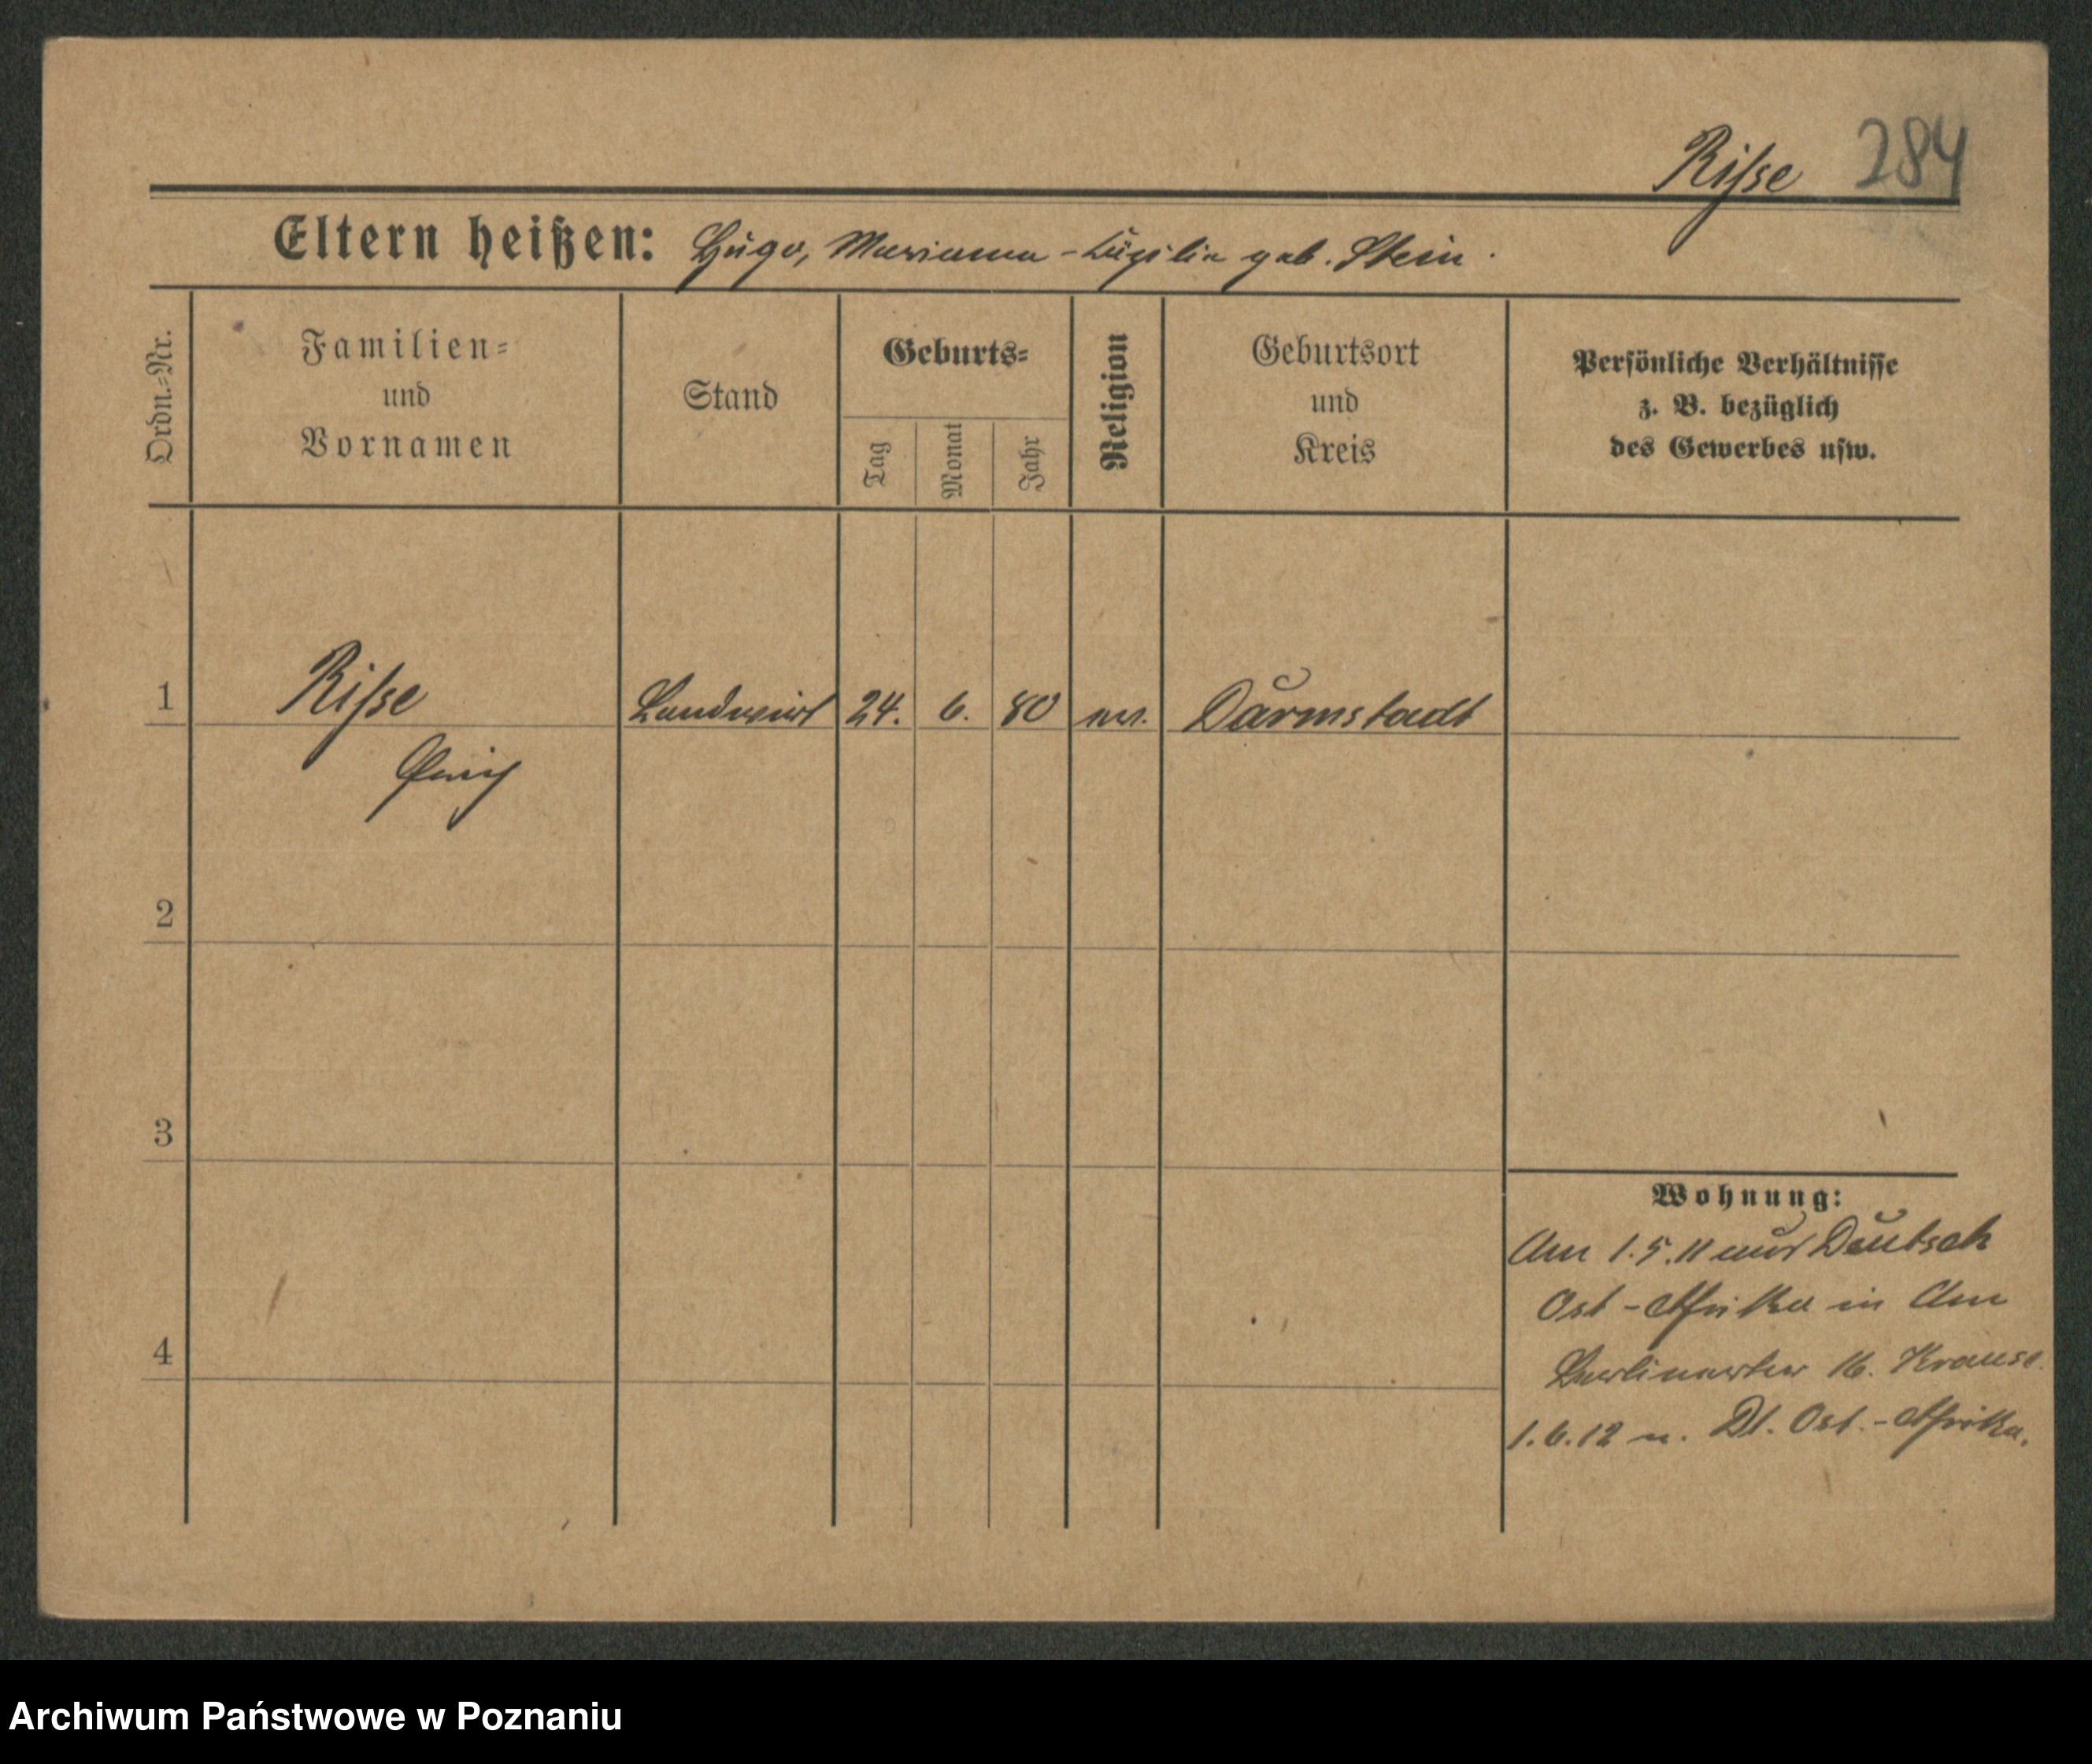 Risse 284
Eltern heißen: Hugo, Marianna - geb. Stein.
Ordn.-Nr.
Familien-
und
Vornamen
Stand
Geburts-
Tag
Monat
Jahr
Religion
Geburtsort
und
Kreis
Persönliche Verhältnisse
z. B. bezüglich
des Gewerbes usw.
1 Risse Landwirt 24. 6. 80 ev. Darmstadt
2
3
4
Wohnung:
Am 1.5.11 aus Deutsch
Ost-Afrika in Am
Berlinertor 16. Krause.
1.6.12 n. Dt. Ost.-Afrika.
Archiwum Państwowe w Poznaniu